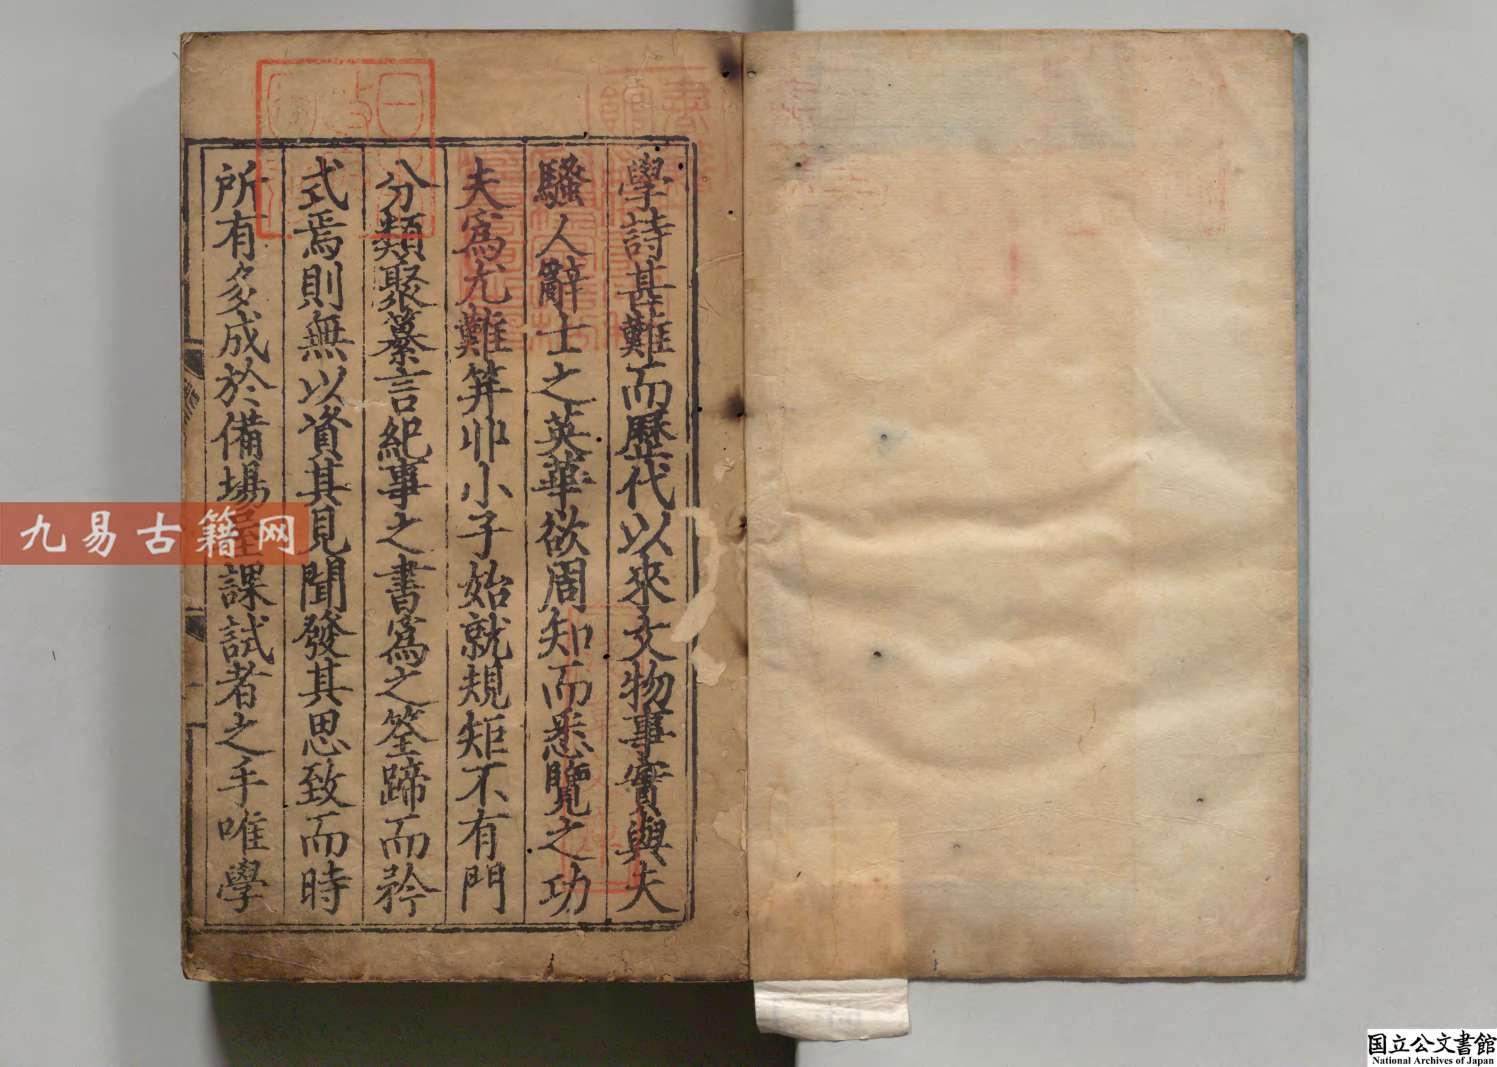 學詩甚難而歷代以來文物事實與夫
騷人辭士之英華欲周知而悉覽之功
夫爲尤難筭丱小子始就規矩不有門
分類聚纂言紀事之書爲之筌蹄而矜
式焉則無以資其見聞發其思致而時
所有多成於備場屋課試者之手唯學
九易古籍网
国立公文書館
National Archives of Japan